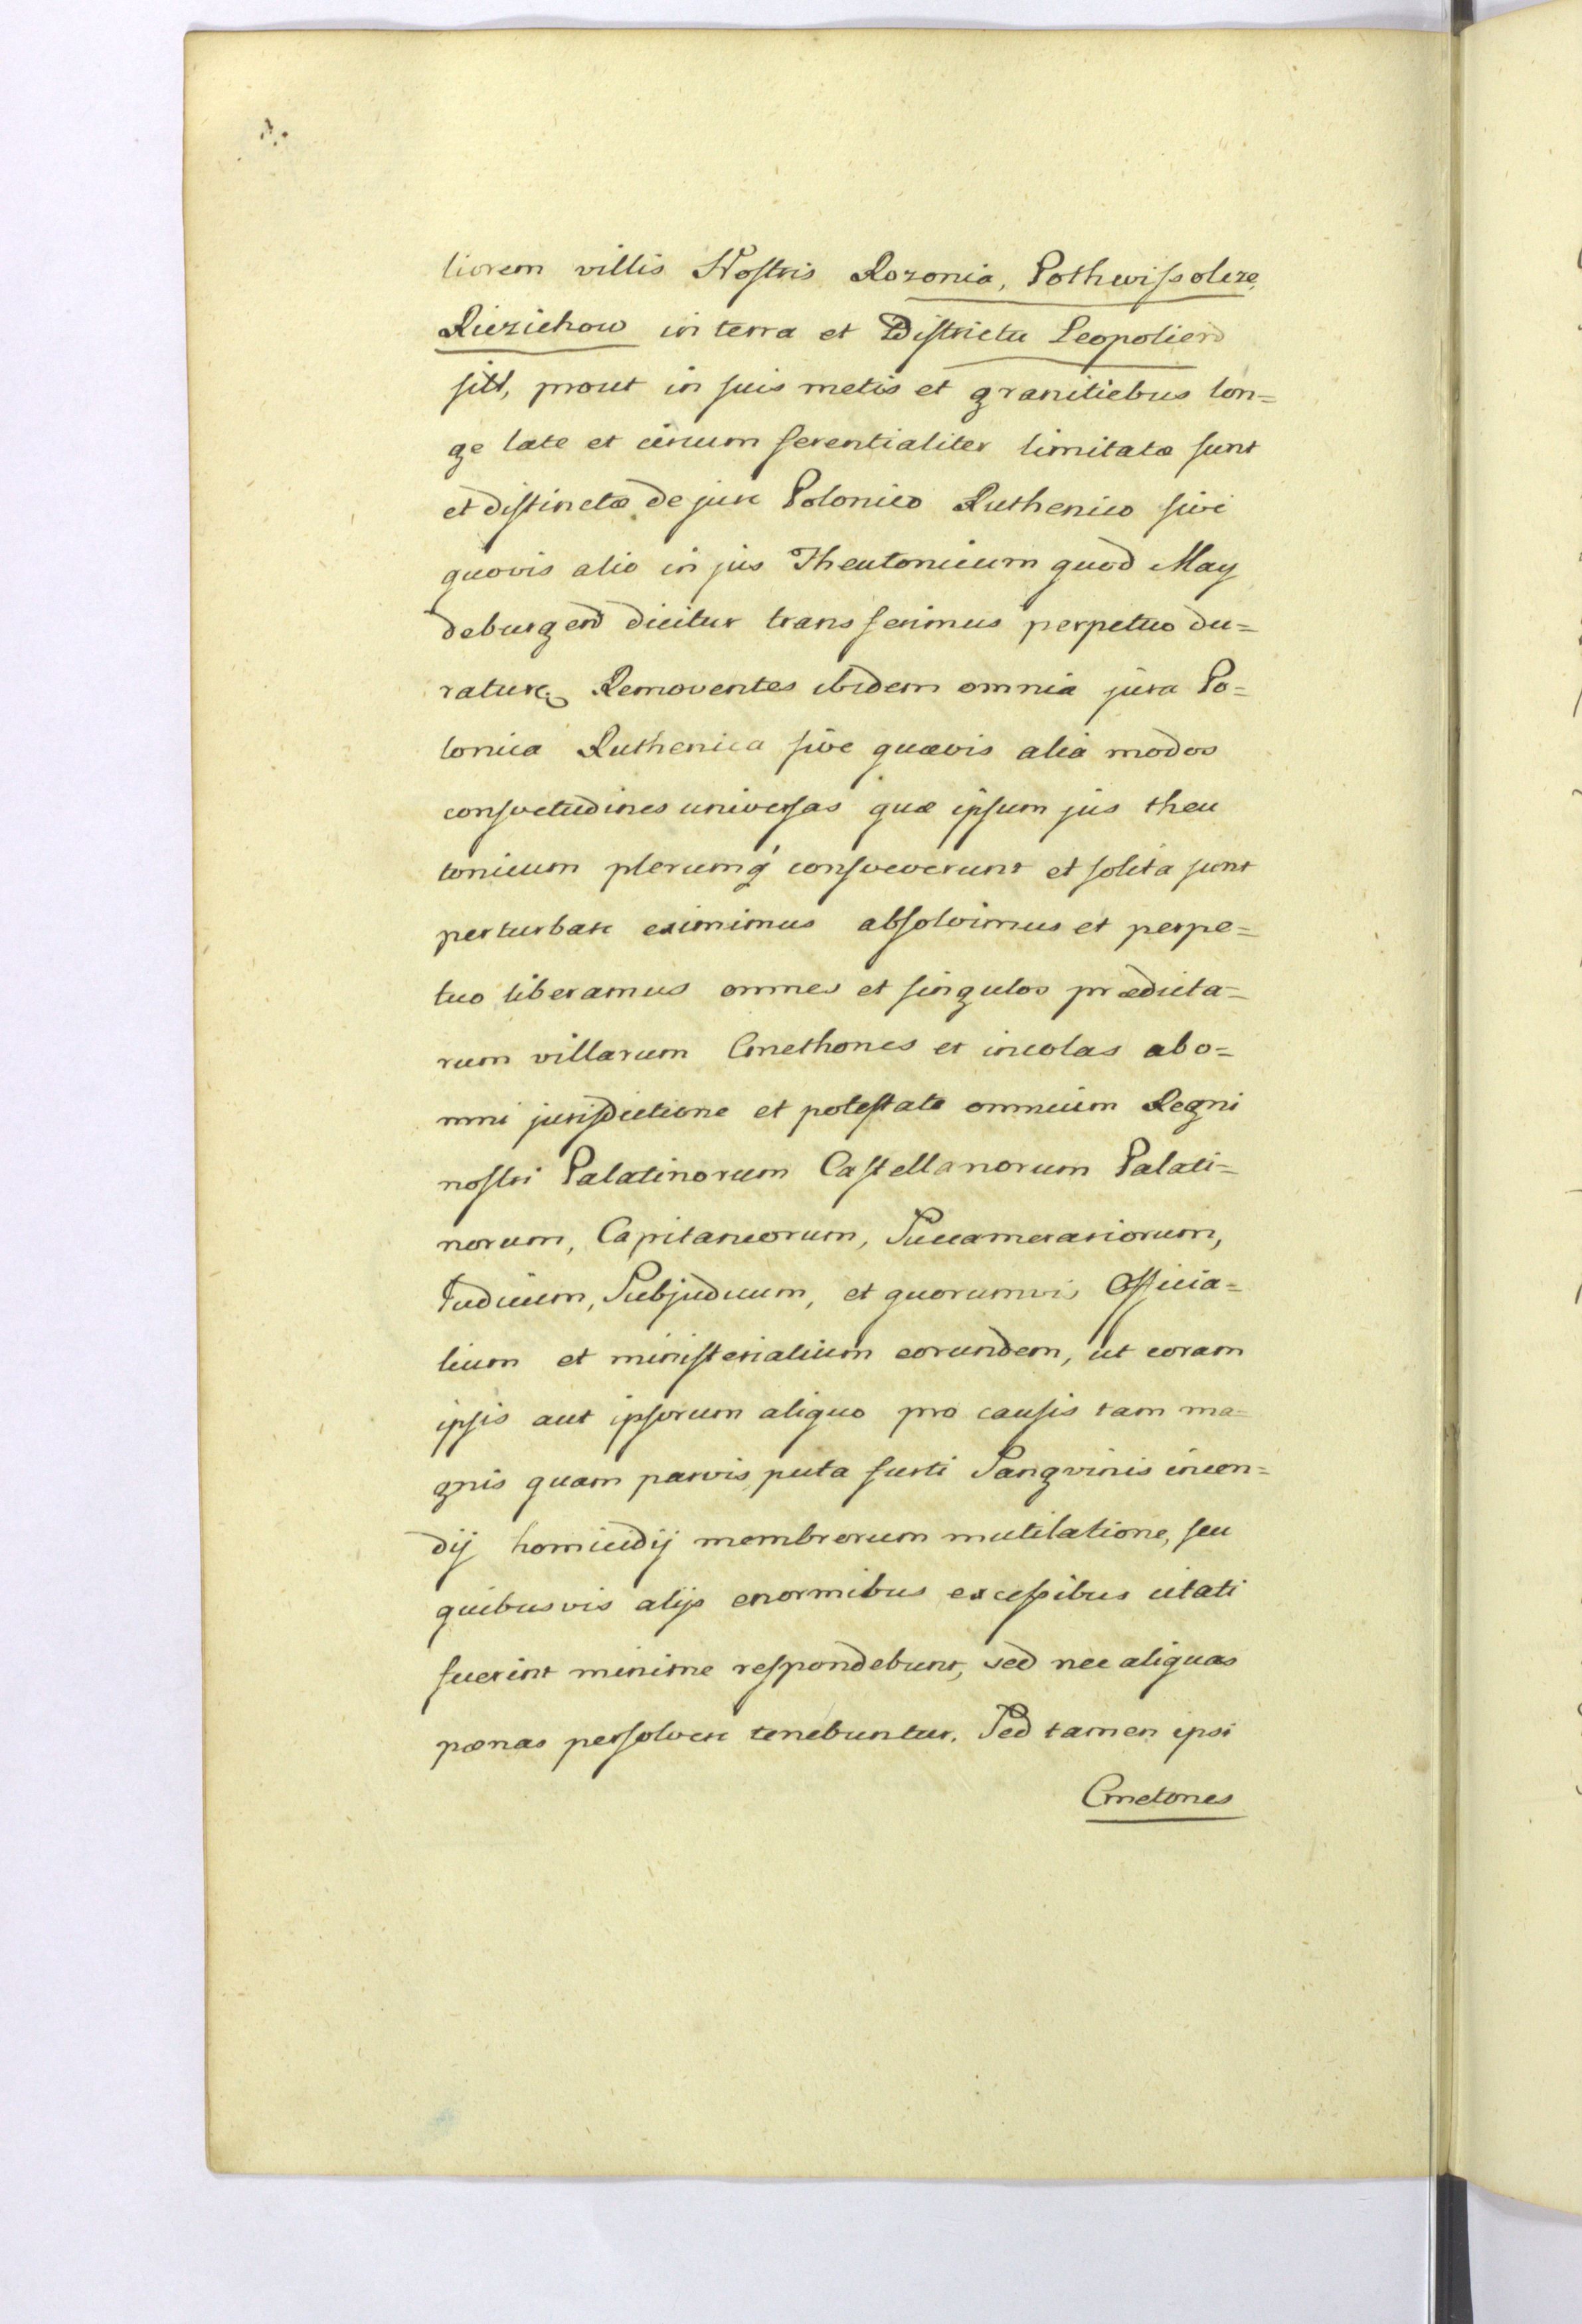 liorem villis Nostris Rozonia, Pothwissolcze
Riezichow in terra et Districtu Leopoliend
sitt, prout in suis metis et granitiebus lon=
ge late et circum ferentialiter limitatæ sunt
et distinctæ de jure Polonico Ruthenico sive
quovis alio in jus Theutonicum quod May
deburgend dicitur transferimus perpetuo du=
rature. Removentes ibidem omnia jura Po=
lonica Ruthenica sive quævis alia modos
consvetudines universas quæ ipsum jus theu
tonicum plerumq́ consveverunt et solita sunt
perturbare eximimus absolvimus et perpe=
tuo liberamus omnes et singulos prædicta=
rum villarum Cmethones et incolas abo=
mni jurisdictione et potestate omnium Regni
nostri Palatinorum Castellanorum Palati=
norum, Capitaneorum, Succamerariorum,
Iudicum, Subjudicum, et quorumvis Officia=
lium et ministerialium eorundem, ut coram
ipsis aut ipsorum aliquo pro causis tam ma=
gnis quam parvis puta furti Sangvinis incen=
dij homicidij membrorum mutilatione, seu
quibusvis alijs enormibus excessibus citati
fuerint minime respondebunt, sed nec aliquas
pœnas persolvere tenebuntur. Sed tamen ipsi
Cmetones